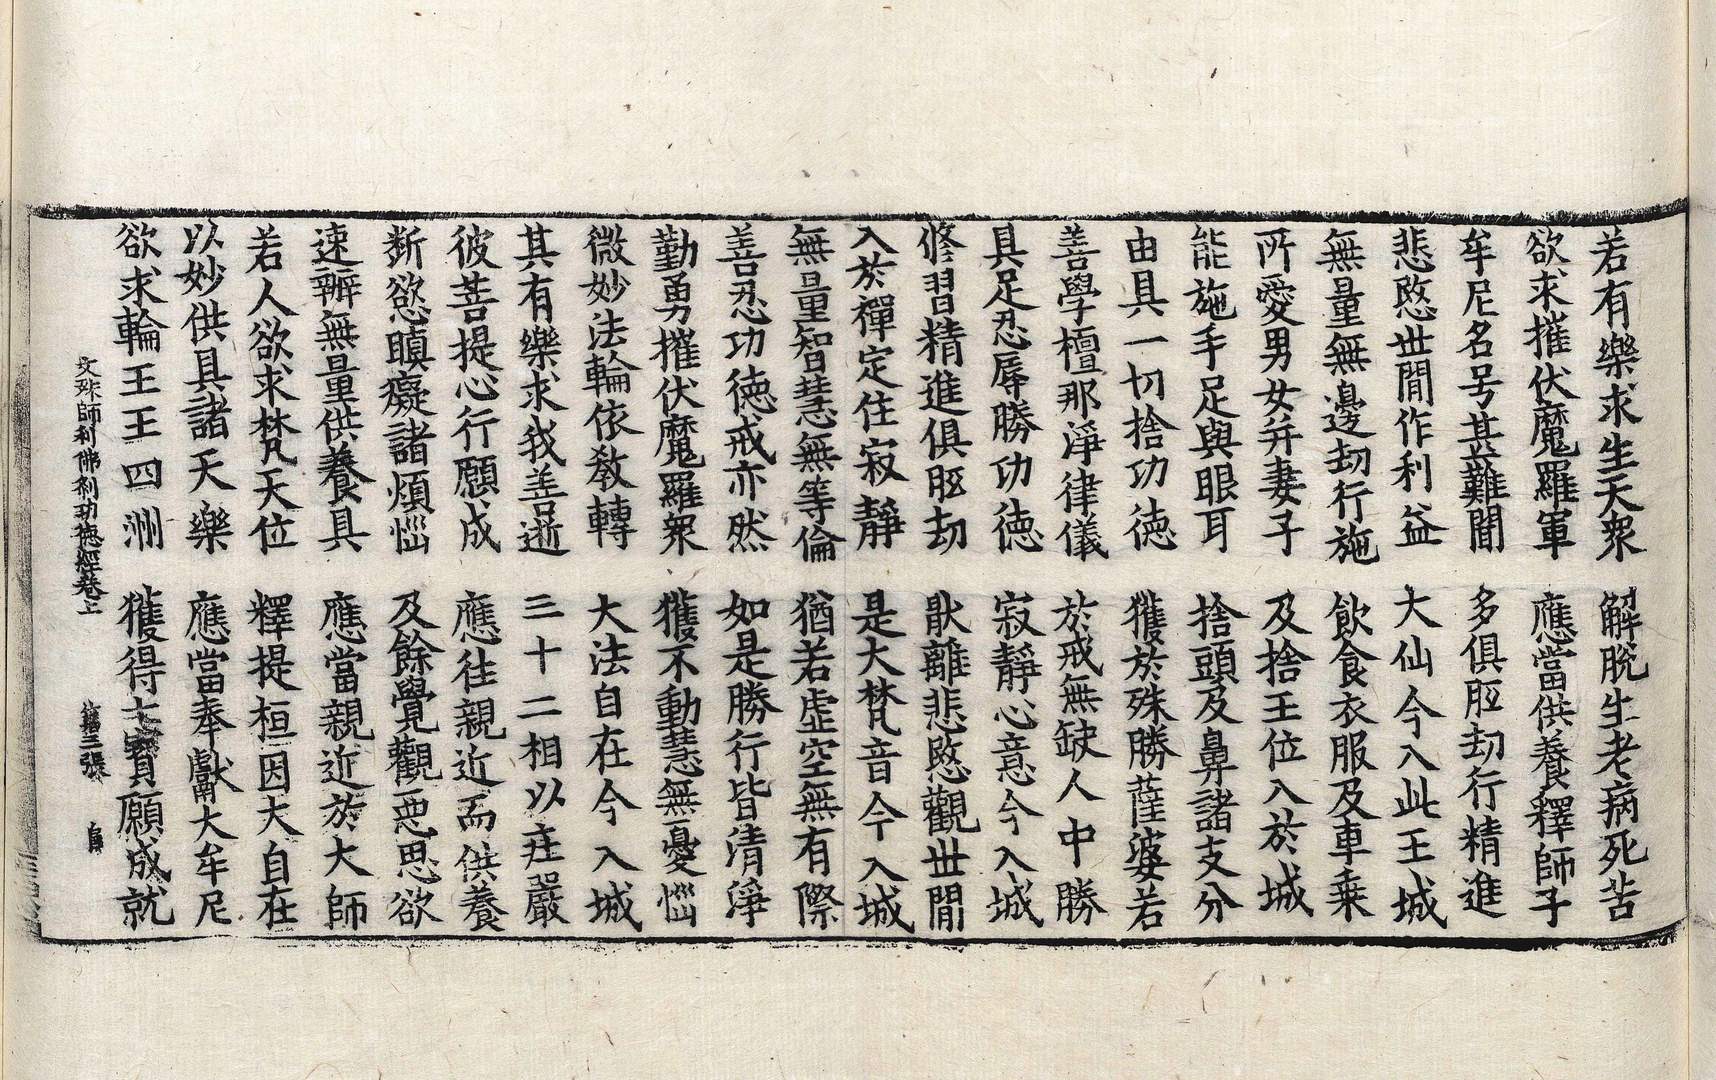 若有樂求生天衆　解脫生老病死苦
欲求摧伏魔羅軍　應當供養釋師子
牟尼名号甚難聞　多俱胝劫行精進
悲愍世間作利益　大仙今入此王城
無量無邊劫行施　飲食衣服及車乗
所愛男女并妻子　及捨王位入於城
能施手足與眼耳　捨頭及鼻諸支分
由具一切捨功德　獲於殊勝薩婆若
善學檀那淨律儀　於戒無缺人中勝
具足忍辱勝功德　寂靜心意今入城
修習精進俱胝劫　猒離悲愍觀世間
入於禪定住寂靜　是大梵音今入城
無量智慧無等倫　猶若虛空無有際
善忍功德戒亦然　如是勝行皆清淨
勤勇摧伏魔羅衆　獲不動慧無憂惱
微妙法輪依教轉　大法自在今入城
其有樂求我善逝　三十二相以莊嚴
彼菩提心行願成　應往親近而供養
斷慾瞋癡諸煩惱　及餘覺觀惡思欲
速辦無量供養具　應當親近於大師
若人欲求梵天位　釋提桓因大自在
以妙供具諸天樂　應當奉獻大牟尼
欲求輪王王四洲　獲得七寶願成就
文殊師利佛刹功德經卷上　第三張